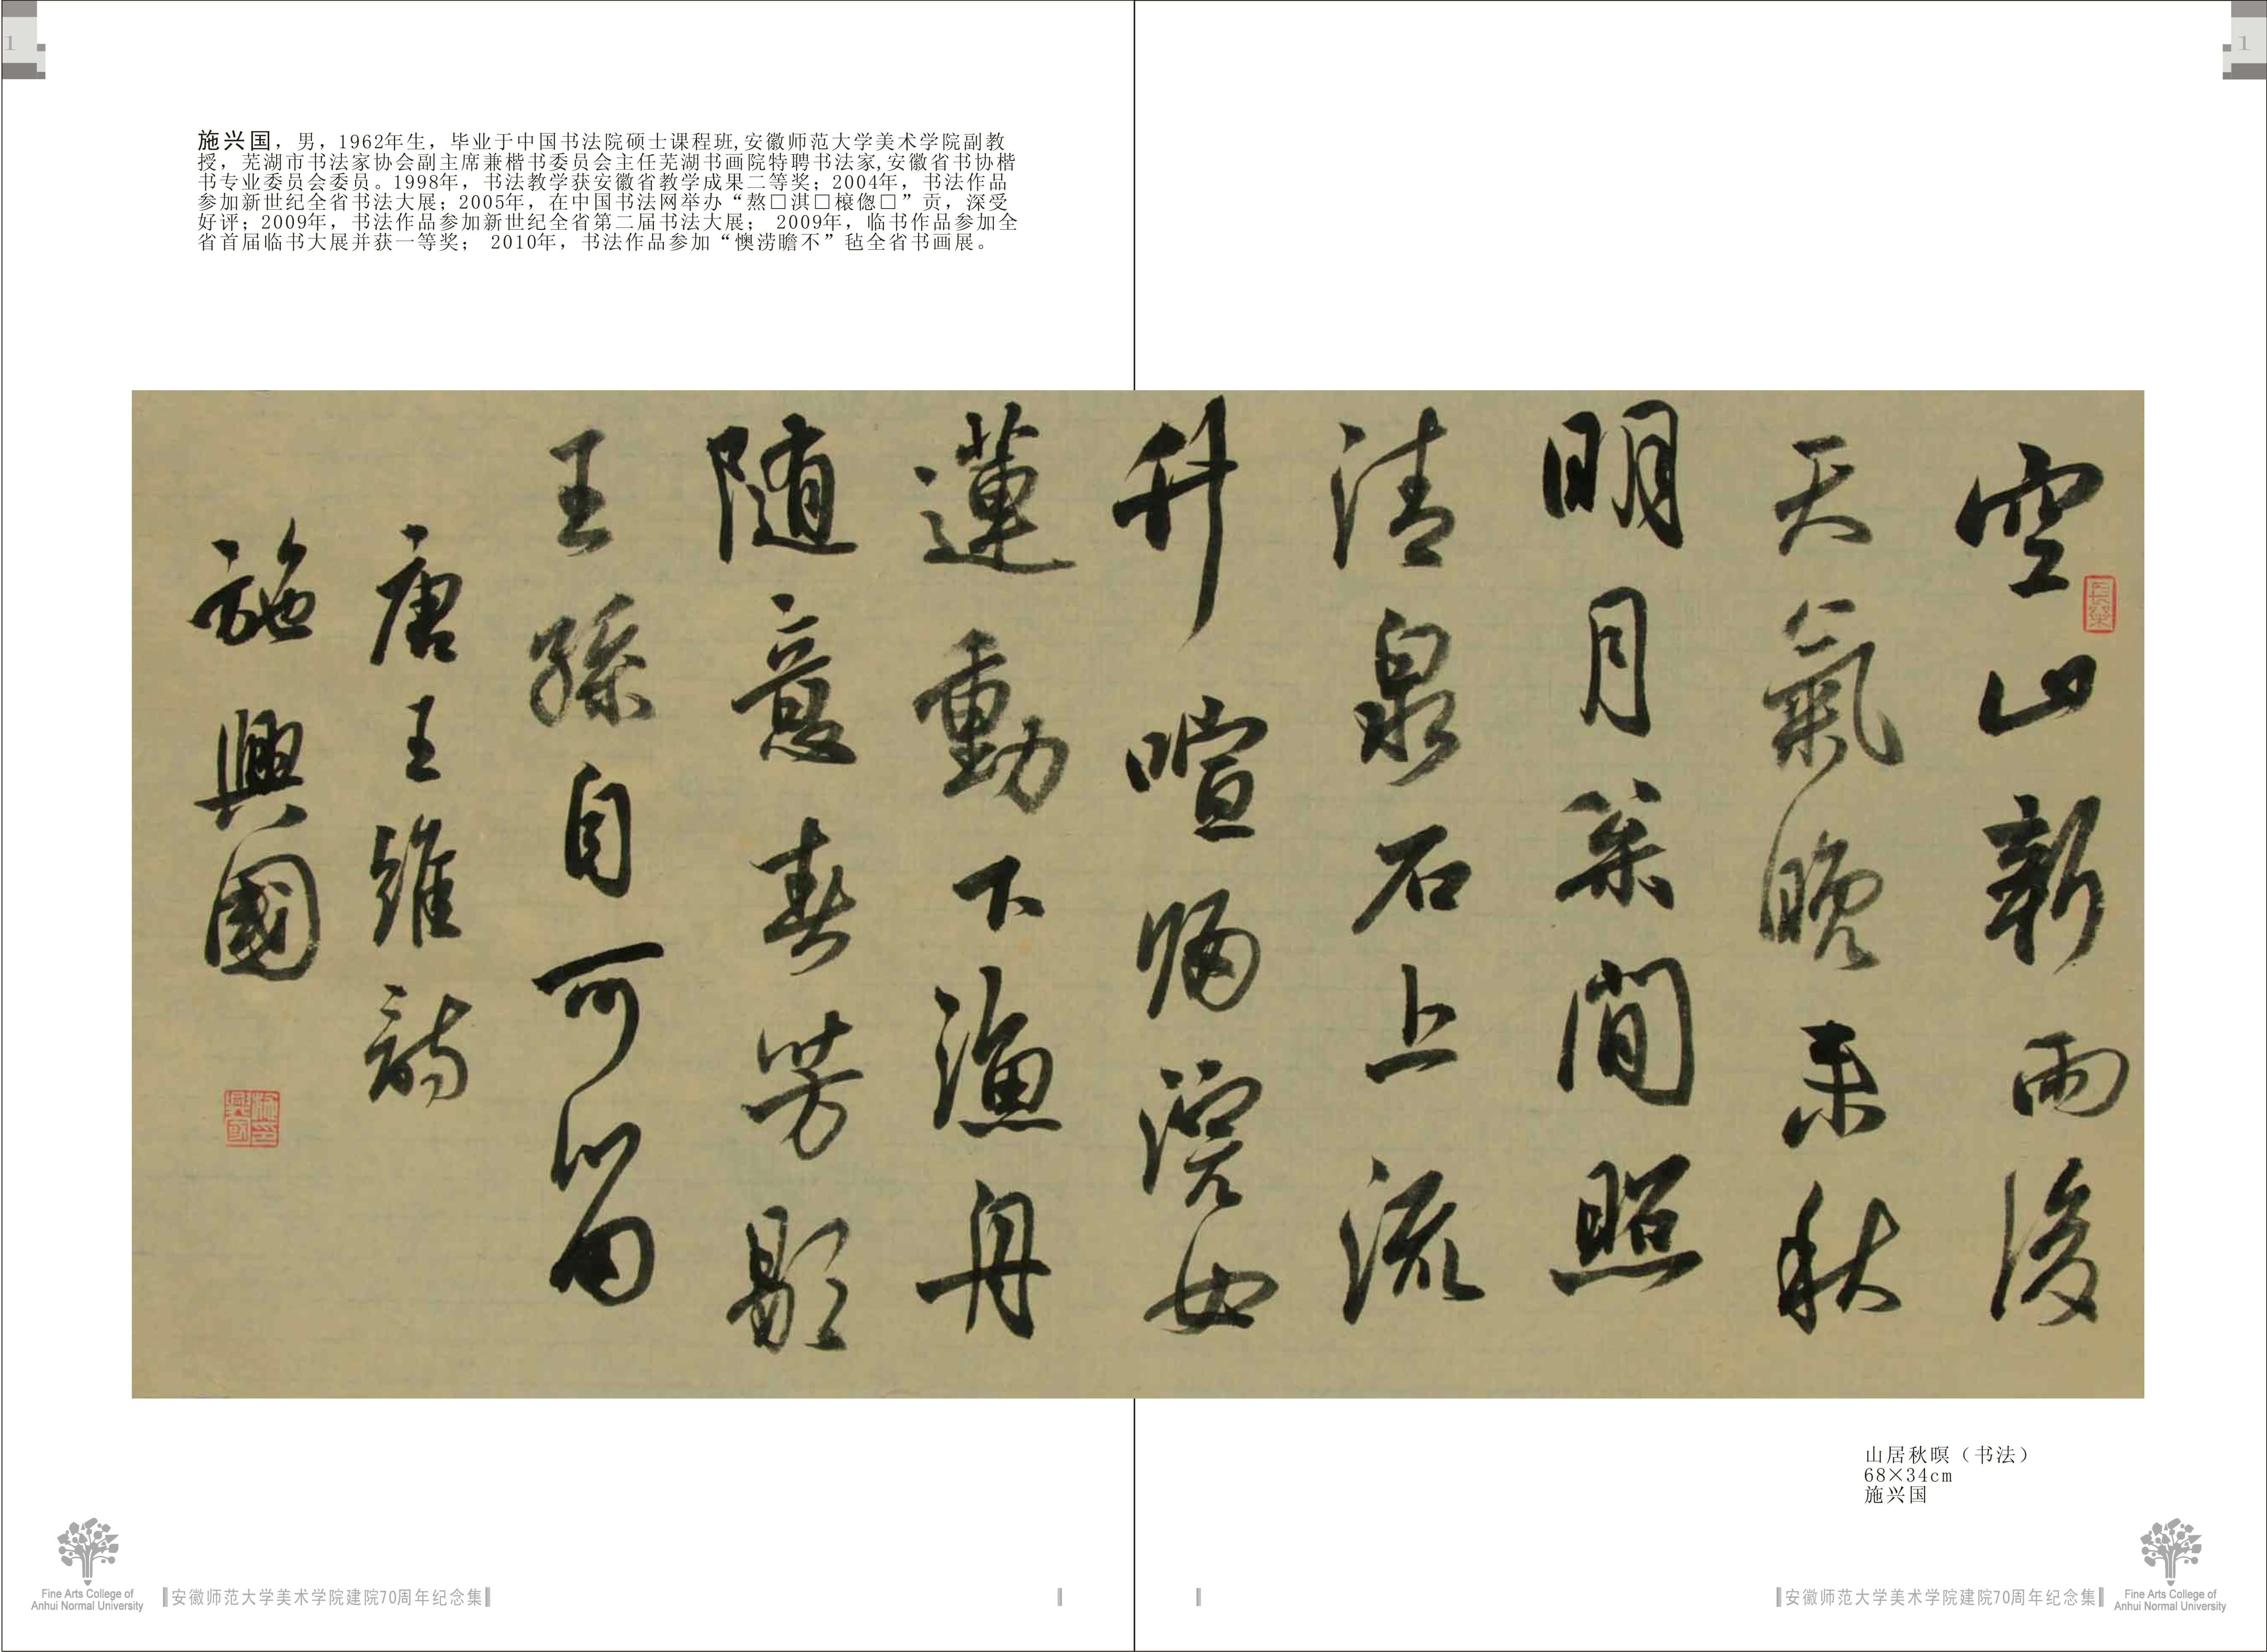 1
1
施兴国，男，1962年生，毕业于中国书法院硕士课程班,安徽师范大学美术学院副教
授，芜湖市书法家协会副主席兼楷书委员会主任芜湖书画院特聘书法家,安徽省书协楷
书专业委员会委员。1998年，书法教学获安徽省教学成果二等奖；2004年，书法作品
参加新世纪全省书法大展；2005年，在中国书法网举办“熬□淇□榱偬□”贡，深受
好评；2009年，书法作品参加新世纪全省第二届书法大展； 2009年，临书作品参加全
省首届临书大展并获一等奖； 2010年，书法作品参加“懊涝瞻不”毡全省书画展。
空山新雨後
天氣晚来秋
明月枀間照
清泉石上流
竹喧歸浣女
蓮動下漁舟
随意春芳歇
王孫自可留
唐王維詩
施興國
山居秋暝（书法）
68×34cm
施兴国
Fine Arts College of
Anhui Normal University
安徽师范大学美术学院建院70周年纪念集
安徽师范大学美术学院建院70周年纪念集
Fine Arts College of
Anhui Normal University